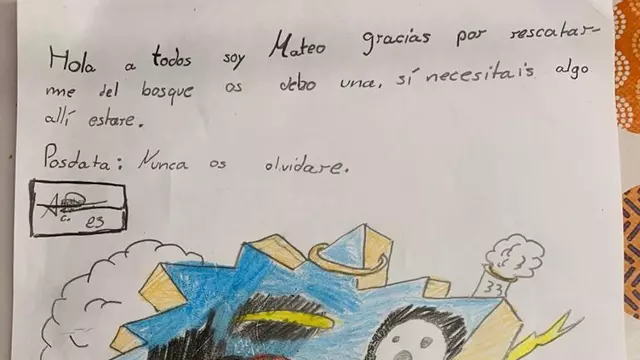 Hola a todos soy Mateo gracias por rescatar-
me del bosque os debo una, sí necesitais algo
allí estare.
Posdata: Nunca os olvidare.
c. es
33